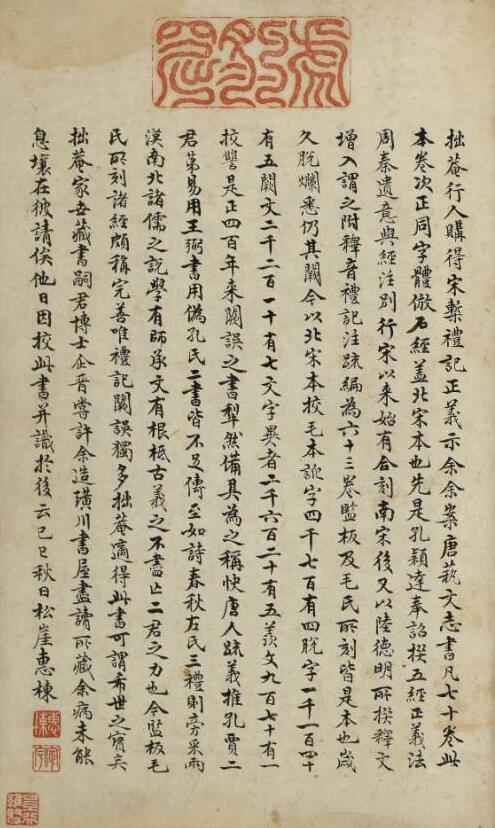 拙菴行人購得宋槧禮記正義示余余案唐藝文志書凡七十卷此
本卷次正同字體倣石經蓋北宋本也先是孔穎達奉詔撰五經正義法
周秦遺意與經注別行宋以來始有合刻南宋後又以陸德明所撰釋文
增入謂之附釋音禮記注疏編為六十三卷監板及毛氏所刻皆是本也歲
久脫爛悉仍其闕今以北宋本挍毛本訛字四千七百有四脫字一千一百四十
有五闕文二千二百一十有七文字異者二千六百二十有五羨文九百七十有一
挍讐是正四百年来闕誤之書犁然備具為之稱快唐人疏義推孔賈二
君第易用王弼書用偽孔氏二書皆不足傳至如詩春秋左氏三禮則旁采兩
漢南北諸儒之說學有師承文有根柢古義之不盡亡二君之力也今監板毛
氏所刻諸經頗稱完善唯禮記闕誤獨多拙菴適得此書可謂希世之寶矣
拙菴家世藏書嗣君博士企晉嘗許余造璜川書屋盡讀所藏余病未能
息壤在彼請俟他日因挍此書并識於後云己巳秋日松崖惠棟
惠棟
定宇